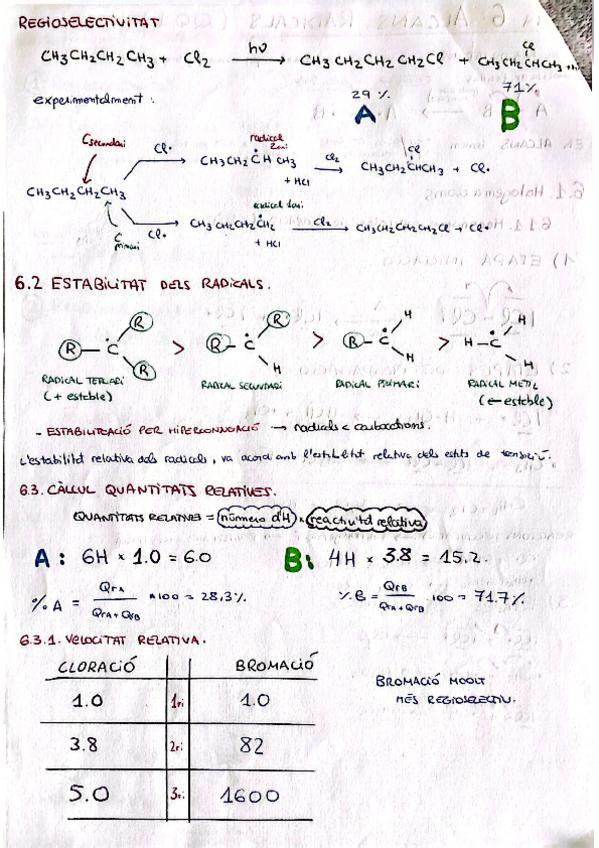 REGIOSELECTIVITAT
CH3CH2CH2CH3 + Cl2 hν → CH3CH2CH2CH2Cl + CH3CH2CHCH3
Cl
experimentalment :
29 % 71%
A B
Csecundari Cl• radical 2ari Cl2 Cl
CH3CH2ĊHCH3 → CH3CH2CHCH3 + Cl•
+ HCl
CH3CH2CH2CH3
radical 1ari
C primari Cl• CH3CH2CH2ĊH2 Cl2 → CH3CH2CH2CH2Cl + Cl•
+ HCl
6.2 ESTABILITAT DELS RADICALS.
R R H H
R — Ċ > R — Ċ > R — Ċ > H — Ċ
R H H H
RADICAL TERCIARI RADICAL SECUNDARI RADICAL PRIMARI RADICAL METIL
(+ estable) (- estable)
- ESTABILITZACIÓ PER HIPERCONJUGACIÓ → radicals < carbocations.
L'estabilitat relativa dels radicals, va acord amb l'estabilitat relativa dels estats de transició.
6.3. CÀLCUL QUANTITATS RELATIVES.
QUANTITATS RELATIVES = número d'H × reactivitat relativa
A : 6H × 1.0 = 6.0 B: 4H × 3.8 = 15.2.
% A = QrA / QrA + QrB × 100 = 28,3% % B = QrB / QrA + QrB 100 = 71.7%
6.3.1. VELOCITAT RELATIVA.
CLORACIÓ BROMACIÓ
1.0 1ri 1.0
3.8 2ri 82
5.0 3ri 1600
BROMACIÓ MOLT
MÉS REGIOSELECTIU.